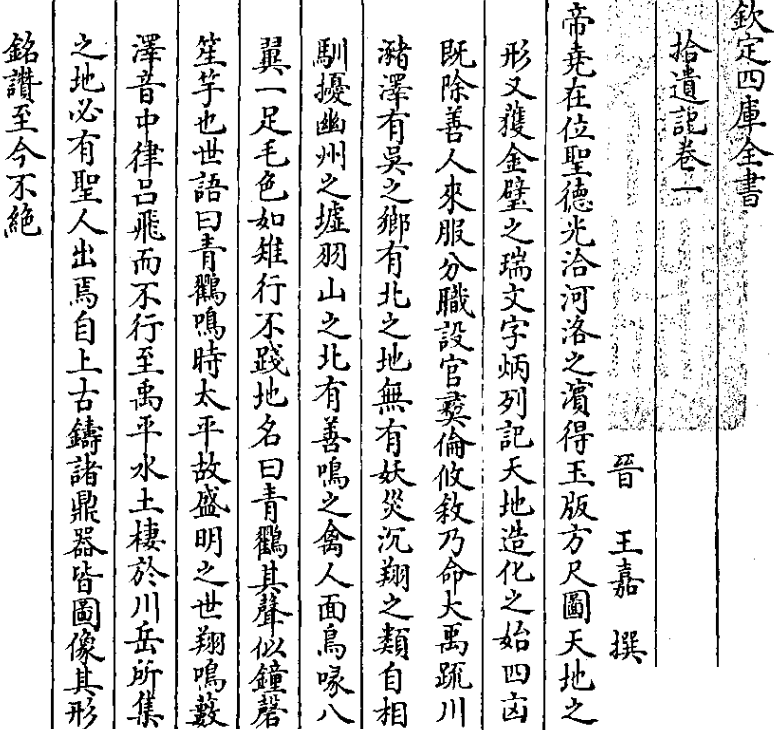 欽定四庫全書
拾遺記卷一
晉 王嘉 撰
帝堯在位聖德光洽河洛之濱得玉版方尺圖天地之
形又獲金璧之瑞文字炳列記天地造化之始四凶
既除善人來服分職設官彛倫攸敘乃命大禹䟽川
瀦澤有吳之鄉有北之地無有妖災沉翔之類自相
馴擾幽州之墟羽山之北有善鳴之禽人面鳥喙八
翼一足毛色如雉行不踐地名曰青鸐其聲似鐘磬
笙竽也世語曰青鸐鳴時太平故盛明之世翔鳴藪
澤音中律吕飛而不行至禹平水土棲於川岳所集
之地必有聖人出焉自上古鑄諸鼎器皆圖像其形
銘讃至今不絶